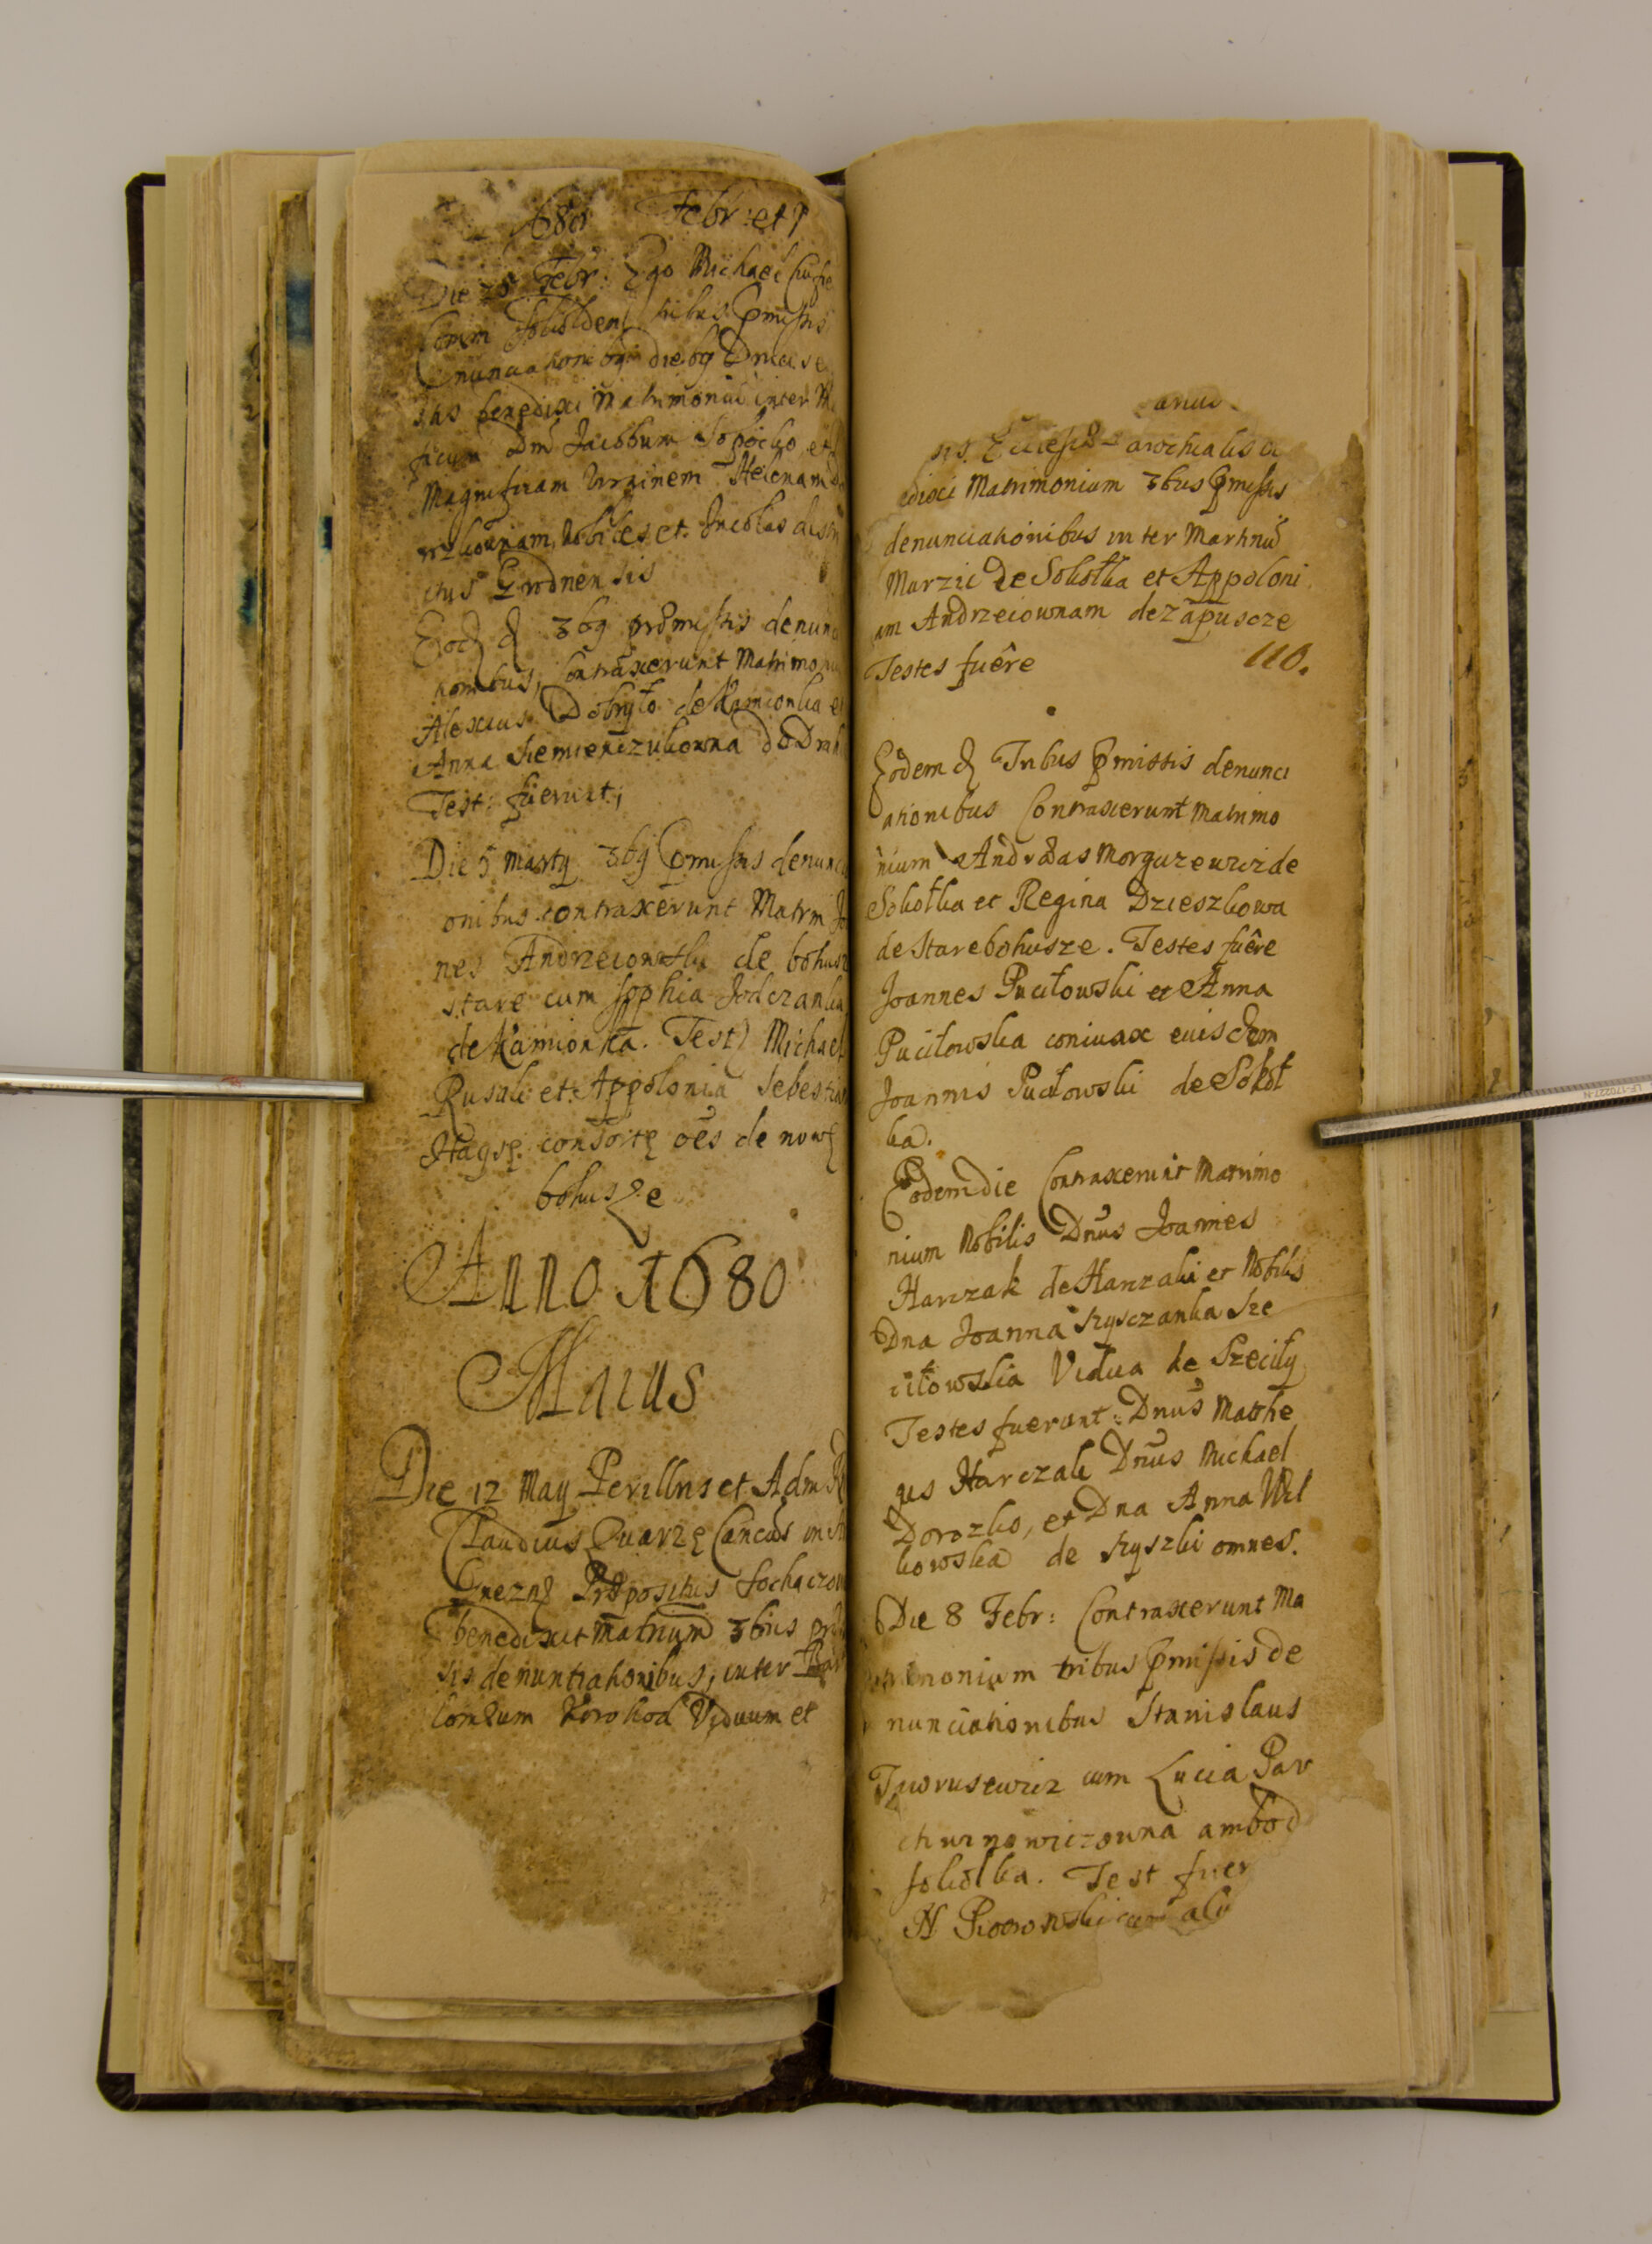 1680 Febr: et
Die 25 Febr: Ego Michael
Comm Sokolden tribus Pmissis
nunciationibq diebq Dnicis
sitis benedixi Matrimoniũ inter
ficum Dm̃ Jacobbum Sopocko et
Magnificam Virginem Helenam
Nobiles et Incolas distri
ctus Grodnensis
Eod d 3bq præmissis denunci
tionibus, Contraxerunt Matrimoni
Alexius Dobryło de Kamionka et
Anna Siemienczukowna
Test: fuerunt;
Die 5 Martij 3bq Pmissis denunci
onibus contraxerunt Matrm Jo
nes de bohusz
stare cum Sophia Jodczanka
de Kamionka. Test) Michael
Rusak et Appolonia Sebestian
consortę oẽs de nowe
bohusze
Anno 1680
Maius
Die 12 May Perillris et Adm R
Claudius
Gnezn Præpositus Sochaczow
benedixit matrium 3bus præ
sis denuntiationibus, inter Bar
lomæum Korokod Viduum et
sis. Ecclesiæ arochialis
edixi Matrimonium 3bus Pmissis
denunciationibus inter Martinũ
Murzic de Sokołka et Appoloni
am Andrzeiownam de zapuscze
Testes fuêre 110.
Eodem d Tribus Pmissis denunci
ationibus Contraxerunt Matrimo
nium Andræas Morguzewicz de
Sokołka et Regina Dzieszkowa
de Starebohusze. Testes fuêre
Joannes Puciłowski et Anna
Puciłowska coniuax euisdem
Joannis Puciłowski de Sokoł
ka.
Eodem die Contraxerunt Matrimo
nium Nobilis Dnus Joannes
Harczak de Harczaki et Nobilis
Dna Joanna Szysczanka Sze
ciłowska Vidua de Szeciły
Testes fuerunt: Dnus Mathe
us Harczak Dnus Michael
Dorozko, et Dna Anna Wił
kowska de Kyszki omnes.
Die 8 Febr: Contraxerunt Ma
trimonium tribus Pmissis de
nunciationibus Stanislaus
Jaworusewicz cum Lucia Par
ambo d
Sokołka. Test fuer
N Piotrowski cum